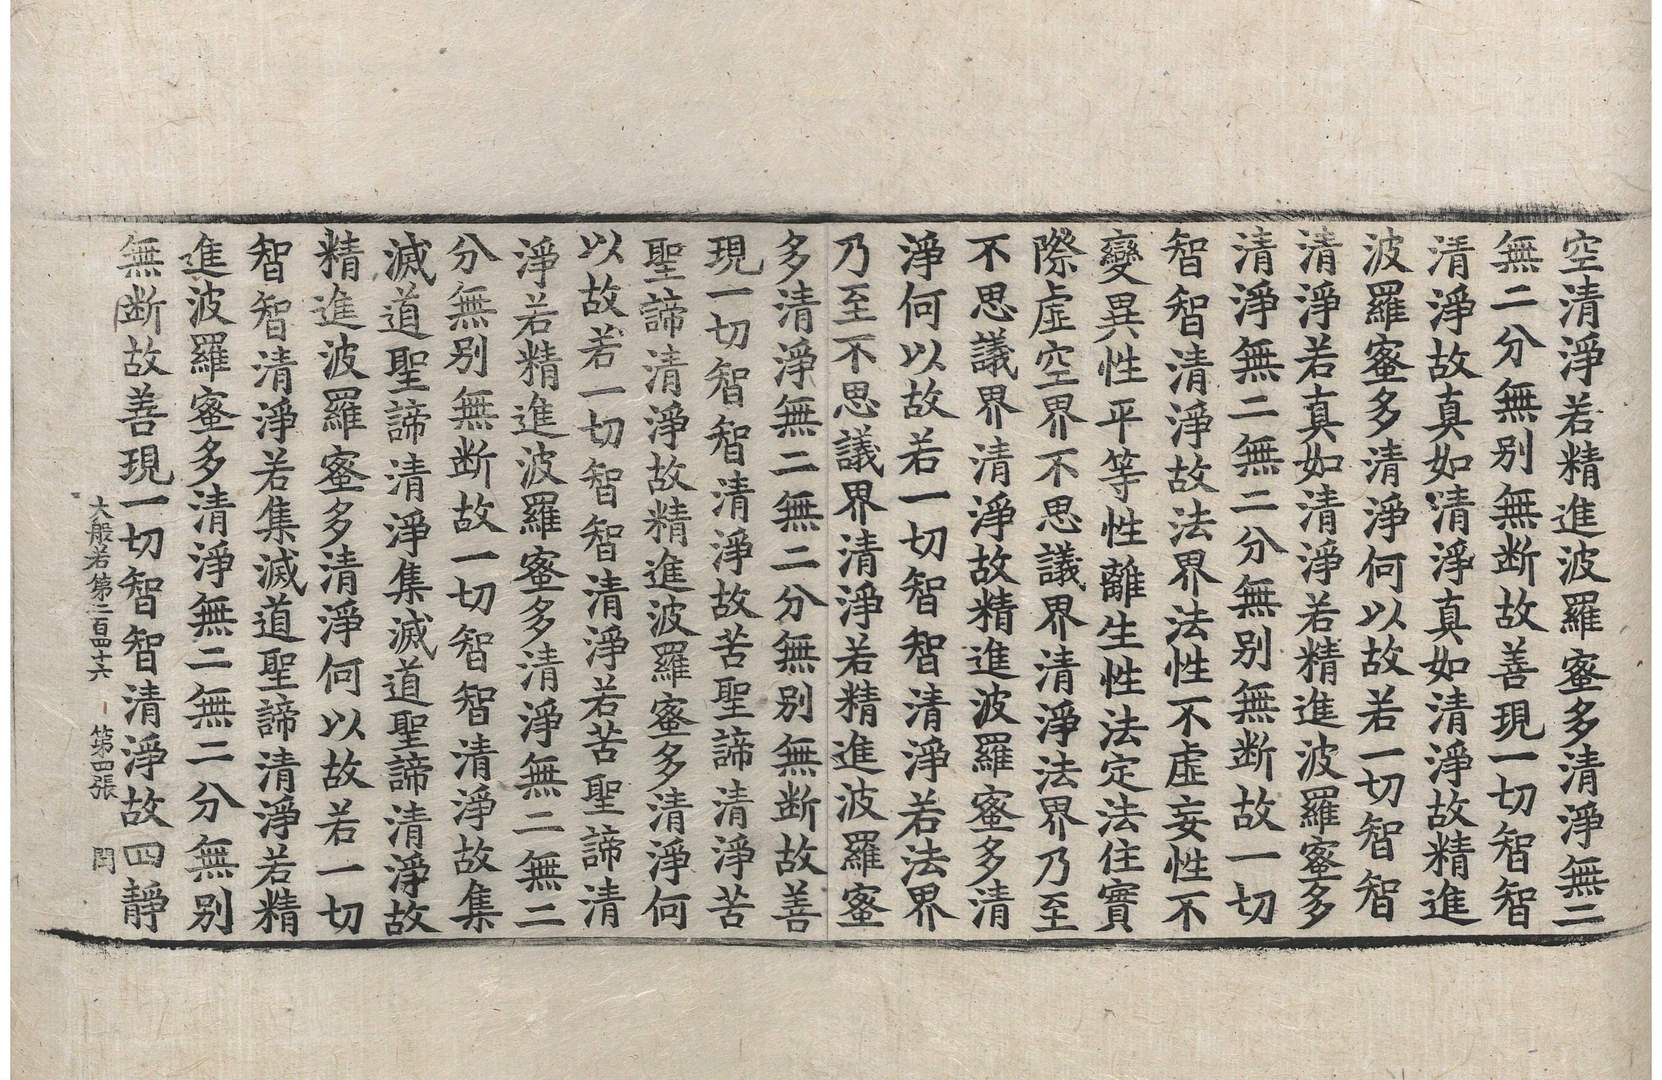 空清淨若精進波羅蜜多清淨無二
無二分無別無断故善現一切智智
清淨故真如清淨真如清淨故精進
波羅蜜多清淨何以故若一切智智
清淨若真如清淨若精進波羅蜜多
清淨無二無二分無別無断故一切
智智清淨故法界法性不虛妄性不
變異性平等性離生性法定法住實
際虛空界不思議界清淨法界乃至
不思議界清淨故精進波羅蜜多清
淨何以故若一切智智清淨若法界
乃至不思議界清淨若精進波羅蜜
多清淨無二無二分無別無断故善
現一切智智清淨故苦聖諦清淨苦
聖諦清淨故精進波羅蜜多清淨何
以故若一切智智清淨若苦聖諦清
淨若精進波羅蜜多清淨無二無二
分無別無断故一切智智清淨故集
滅道聖諦清淨集滅道聖諦清淨故
精進波羅蜜多清淨何以故若一切
智智清淨若集滅道聖諦清淨若精
進波羅蜜多清淨無二無二分無別
無断故善現一切智智清淨故四靜
大般若第二百四十六 第四張 閏